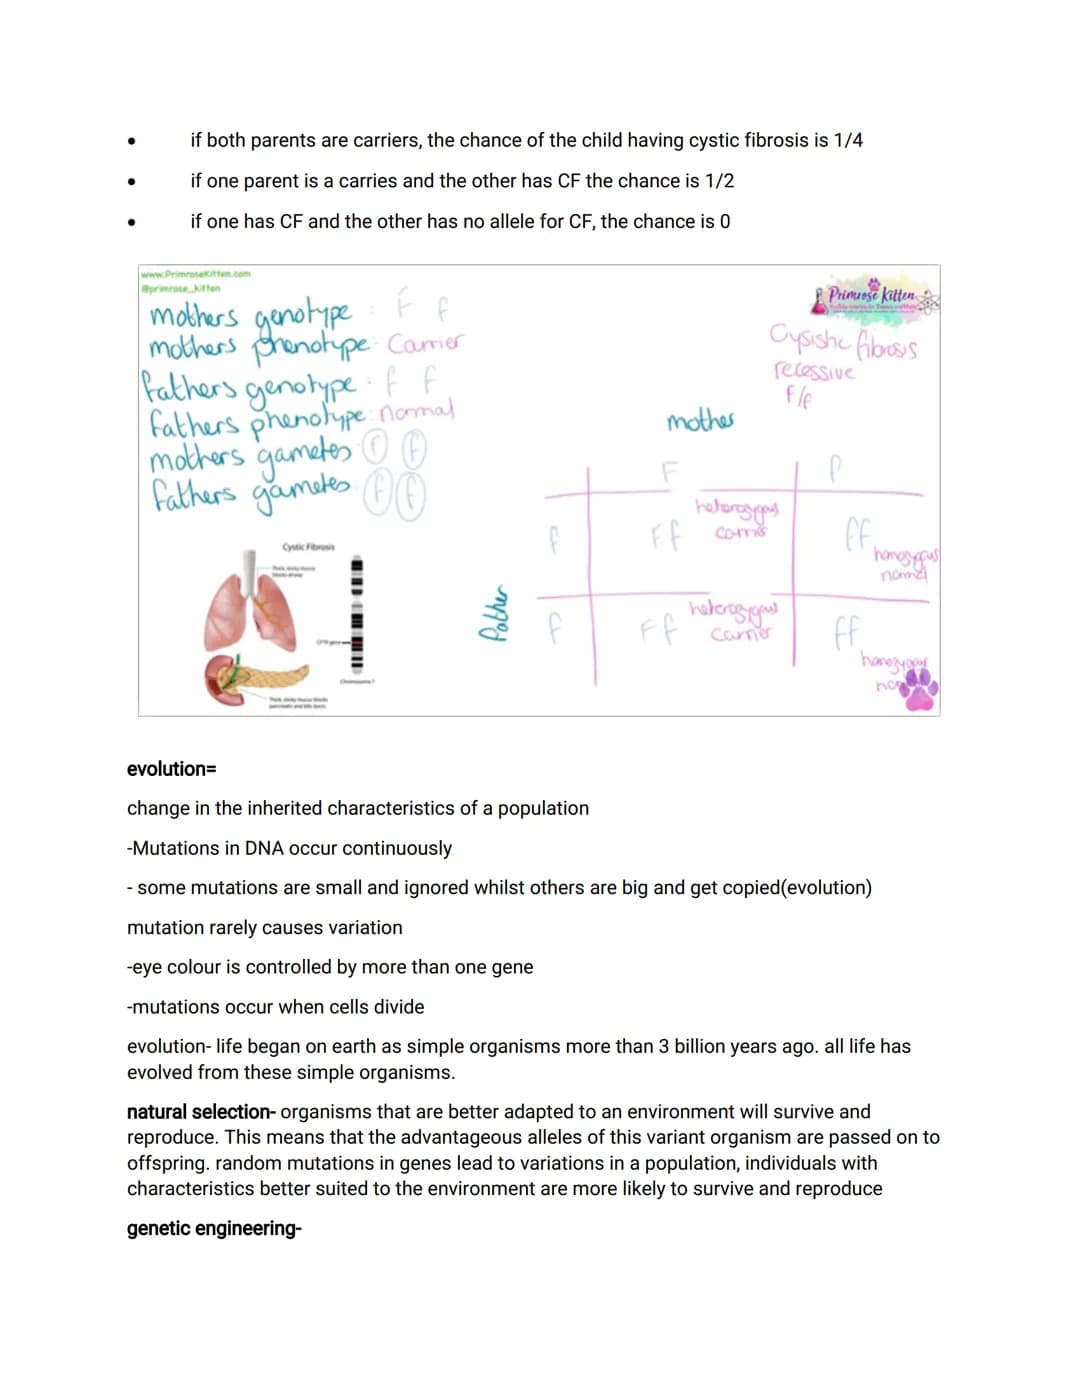 • if both parents are carriers, the chance of the child having cystic fibrosis is 1/4
• if one parent is a carries and the other has CF the chance is 1/2
• if one has CF and the other has no allele for CF, the chance is 0
www.PrimroseKitten.com
@primrose_kitten
Primrose Kitten
mothers genotype : F f
mothers phenotype: Carrier
fathers genotype : f f
fathers phenotype: normal
mothers gametes
fathers gametes
recessive
F/f
mother
F f
f Ff heterozygous ff homozygous
father
f Ff heterozygous carrier ff homozygous
Cystic Fibrosis
Thick, sticky mucus
blocks airway
CFTR gene
Chromosome 7
Thick, sticky mucus blocks
pancreatic and bile ducts
evolution=
change in the inherited characteristics of a population
-Mutations in DNA occur continuously
- some mutations are small and ignored whilst others are big and get copied(evolution)
mutation rarely causes variation
-eye colour is controlled by more than one gene
-mutations occur when cells divide
evolution- life began on earth as simple organisms more than 3 billion years ago. all life has
evolved from these simple organisms.
natural selection- organisms that are better adapted to an environment will survive and
reproduce. This means that the advantageous alleles of this variant organism are passed on to
offspring. random mutations in genes lead to variations in a population, individuals with
characteristics better suited to the environment are more likely to survive and reproduce
genetic engineering-